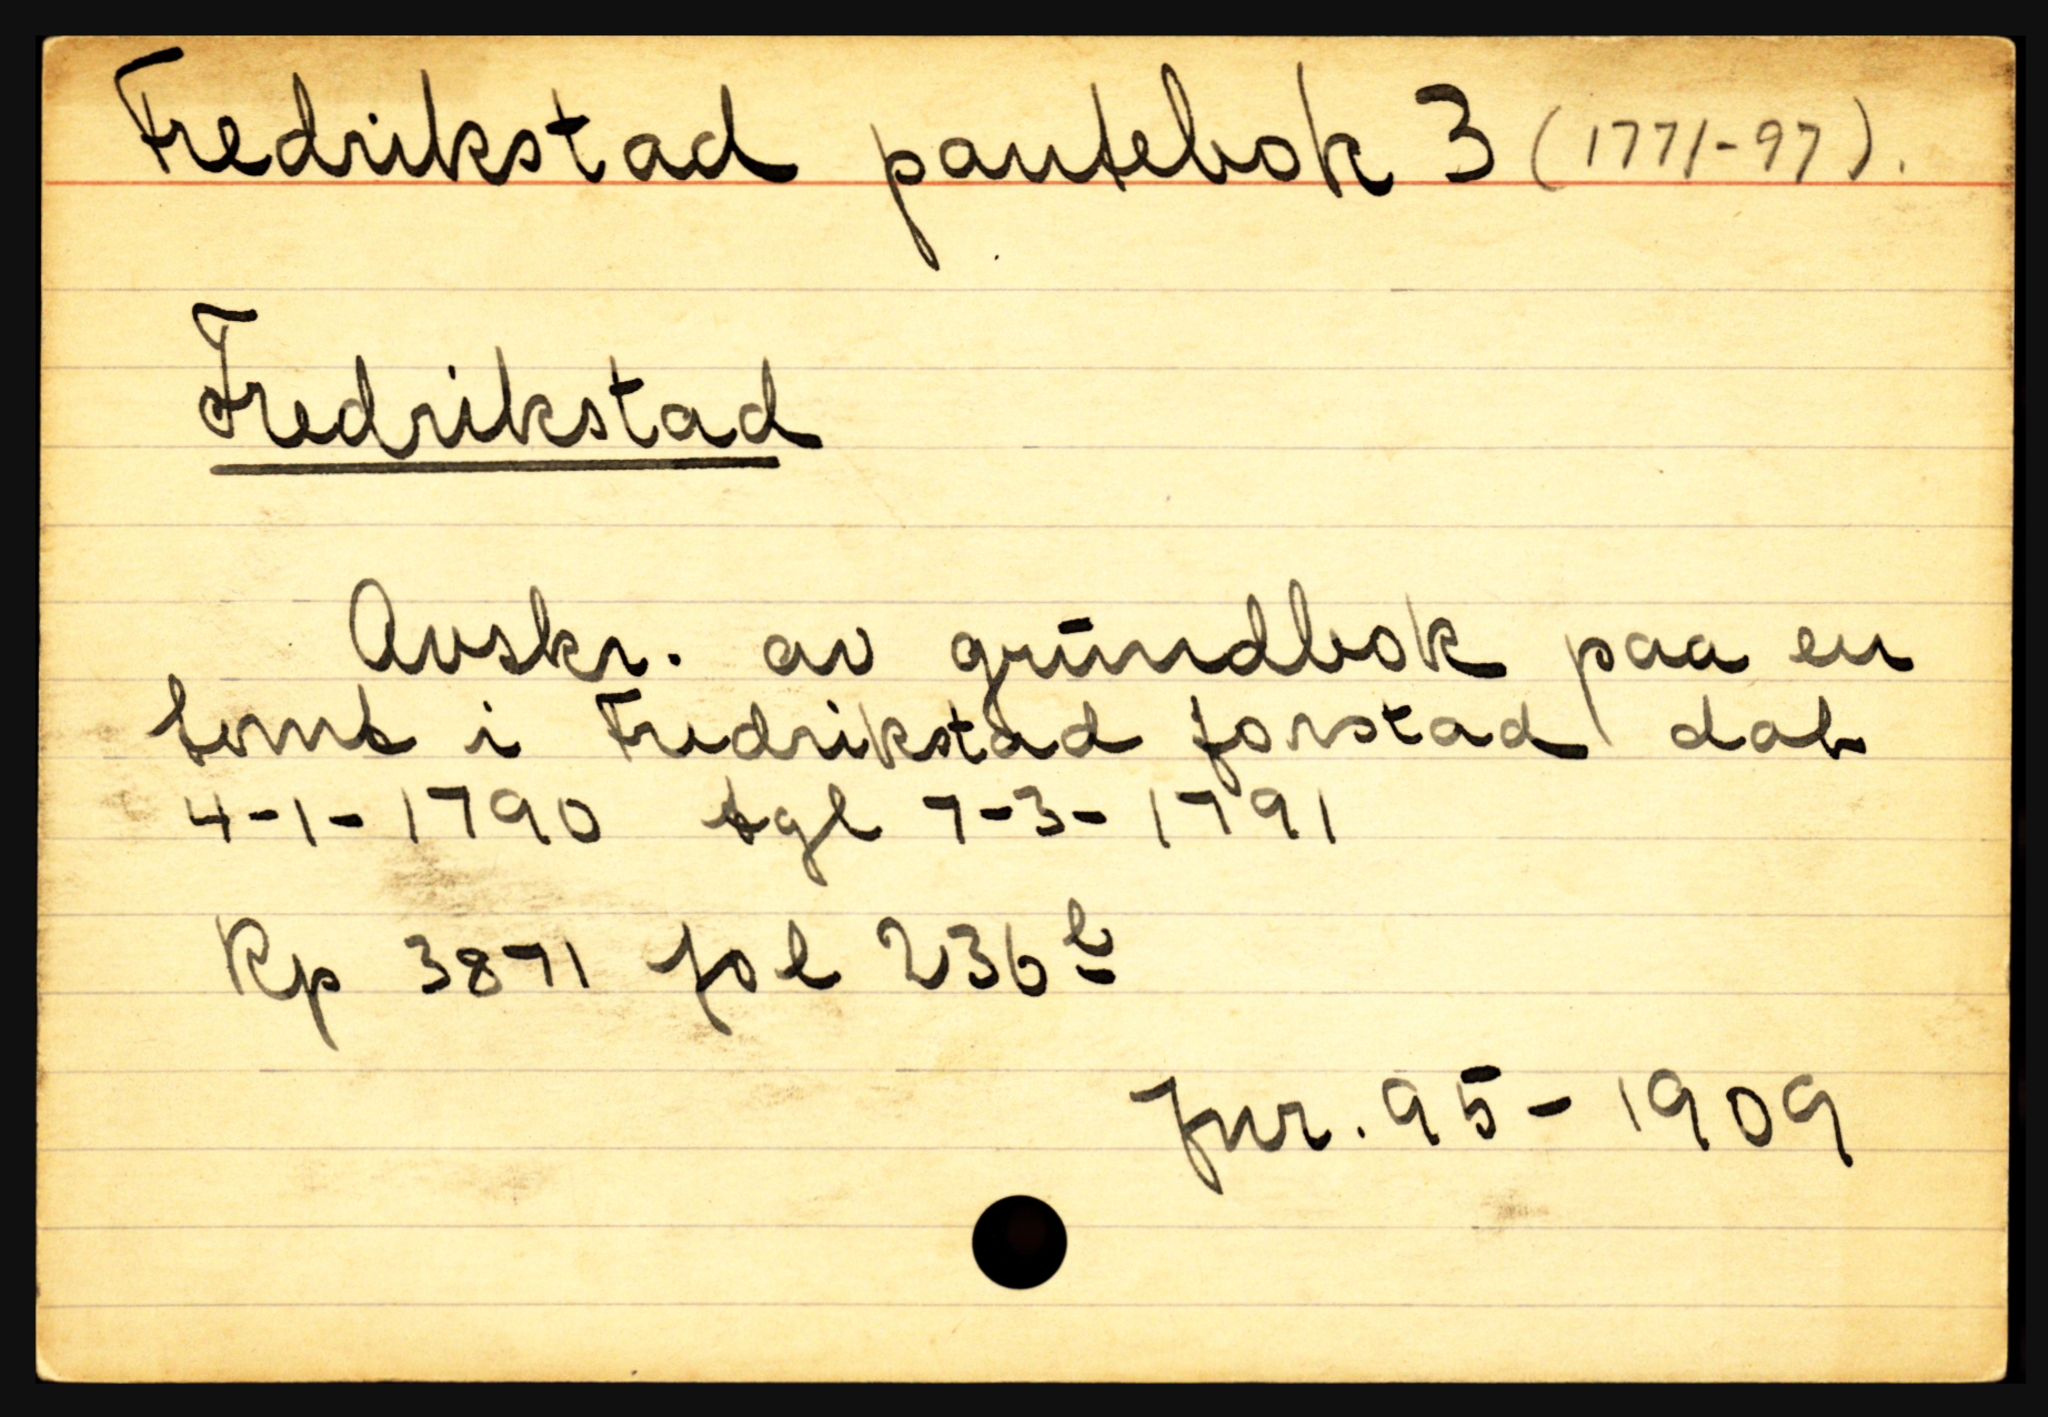 Fredrikstad pantebok 3 (1771-97).
Fredrikstad
Avskr. av grundbok paa en
tomt i Fredrikstad forstad dat
4-1-1790 tgl 7-3-1791
Rp 3871 fol 236 b
Jnr. 95-1909